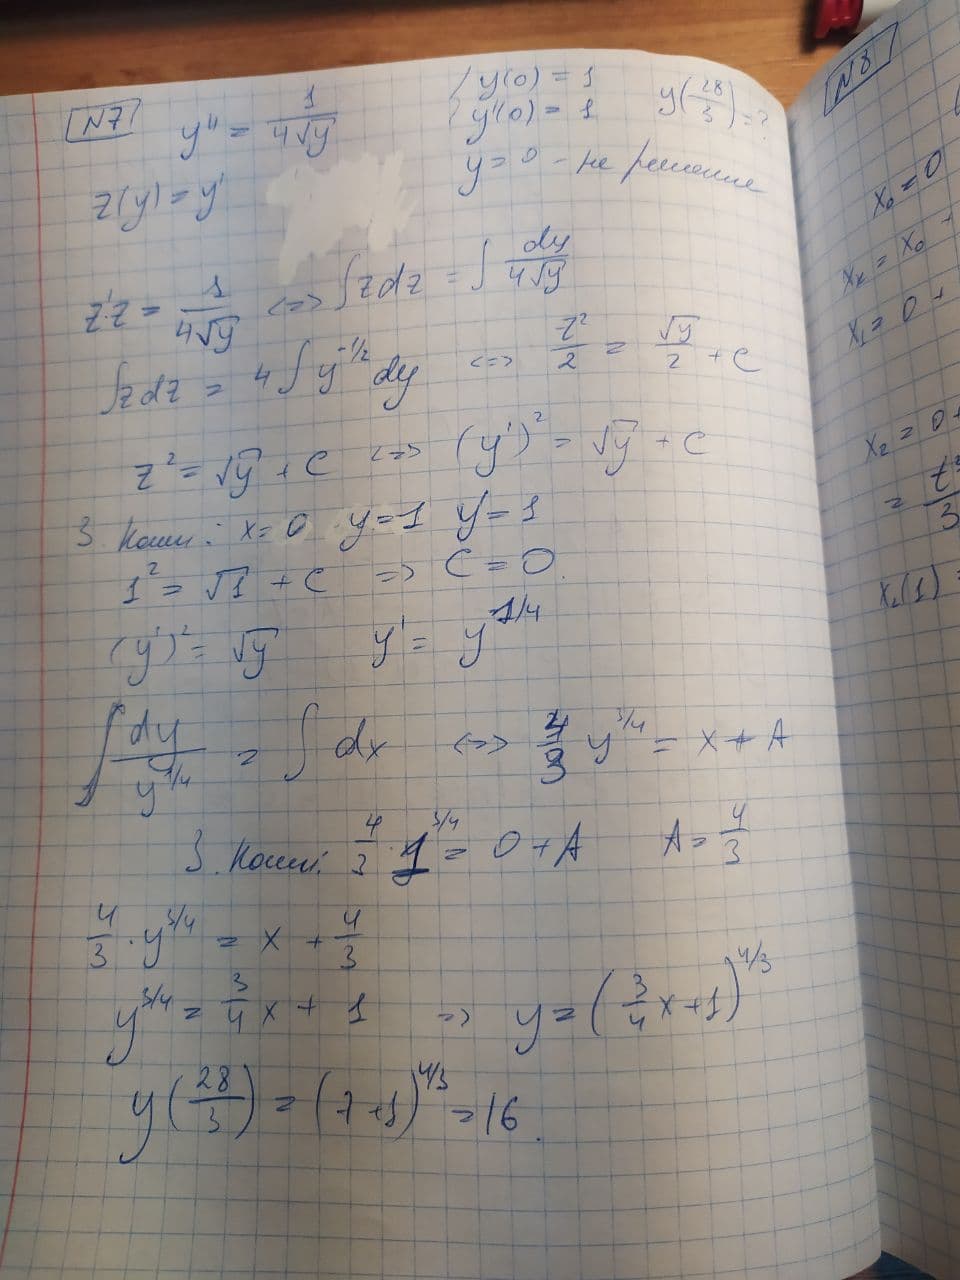 N7 y'' = 1/(4√y) { y(0) = 1 y'(0) = 1 y(28/3) = ?
z(y) = y' y = 0 - не решение
z'z = 1/(4√y) <=> ∫zdz = ∫ dy/(4√y)
∫zdz = 4∫y^(-1/2) dy <=> z²/2 = √y/2 + C
z² = √y + C <=> (y')² = √y + C
З. Коши: x = 0 y = 1 y' = 1
1² = √1 + C => C = 0.
(y')² = √y y' = y^(1/4)
∫ dy/y^(1/4) = ∫dx <=> 4/3 y^(3/4) = x + A
З. Коши: 4/3 · 1^(3/4) = 0 + A A = 4/3
4/3 · y^(3/4) = x + 4/3
y^(3/4) = 3/4 x + 1 => y = (3/4 x + 1)^(4/3)
y(28/3) = (7 + 1)^(4/3) = 16.
N8
x₀ = 0
x₁ = 0 +
x₂ = 0 +